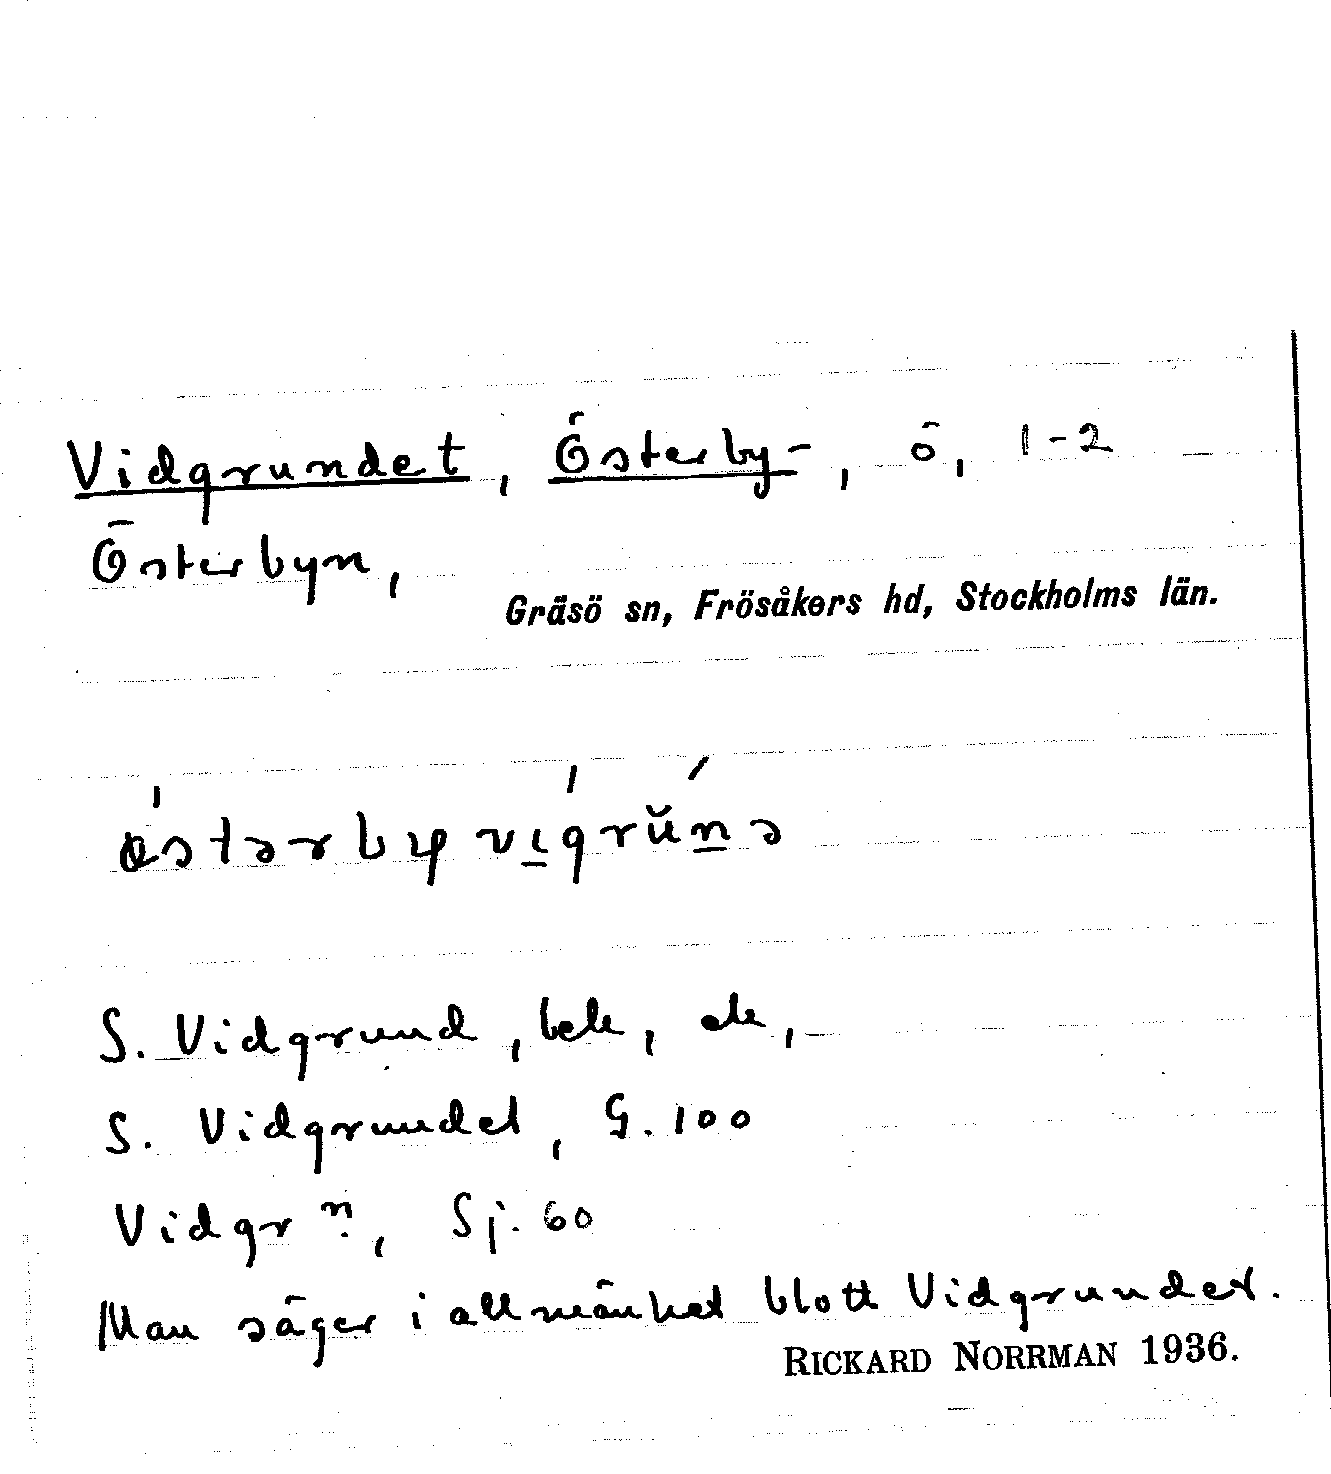 Vidgrundet, Österby-, ö, 1-2
Österbyn,
Gräsö sn, Frösåkers hd, Stockholms län.
östərby vigrŭnə
S. Vidgrund, bek, ek,
S. Vidgrundet, G. 100
Vidgr n:, Sj. 60
Man säger i allmänhet blott Vidgrundet.
RICKARD NORRMAN 1936.